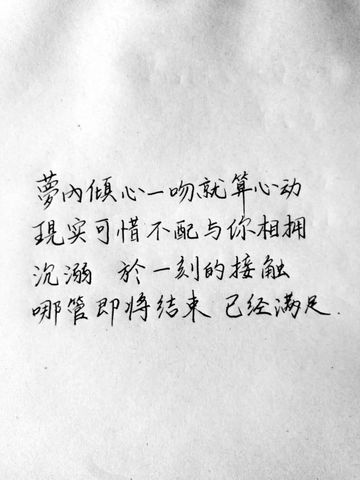 夢內傾心一吻就算心动
現实可惜不配与你相拥
沉溺 於一刻的接触
哪管即将结束 已经满足.